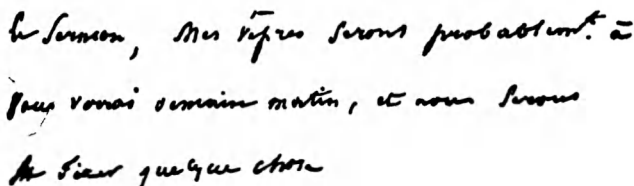 le Sermon, Mes Vêpres seront probablemt. à
vous verrai demain matin, et nous serons
fixer quelque chose